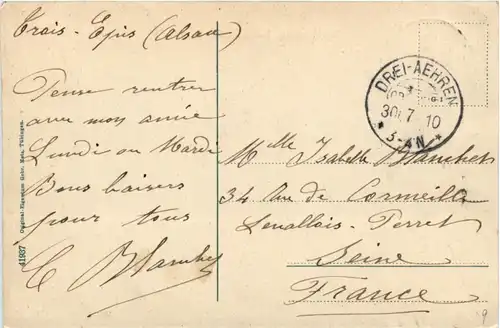 Trois-Epis (Alsace)
Pense rentrer
avec mon amie
Lundi ou Mardi
Bons baisers
pour tous
C Blanchet
41937 Original-Eigentum Gebr. Metz, Tübingen.
DREI-AEHREN
30.7 10
3-4N
Melle Isabelle Blanchet
34 rue de Cormeille
Levallois-Perret
Seine
France
9